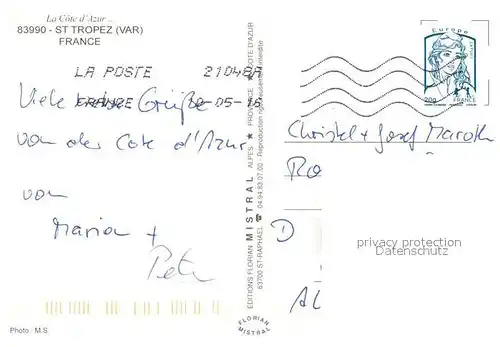 La Côte d'Azur ...
83990 - ST TROPEZ (VAR)
FRANCE
LA POSTE 21048A
FRANCE -05-16
Viele Grüße
von der Cote d'Azur
von
Maria +
Peter
Photo : M.S.
EDITIONS FLORIAN MISTRAL ALPES ★ PROVENCE ★ CÔTE D'AZUR
83700 ST-RAPHAËL ☎ 04.94.83.07.00 - Reproduction rigoureusement interdite
FLORIAN
MISTRAL
Europe
20g FRANCE
Christel + Josef Maroth
Ro
D
AL
privacy protection
Datenschutz